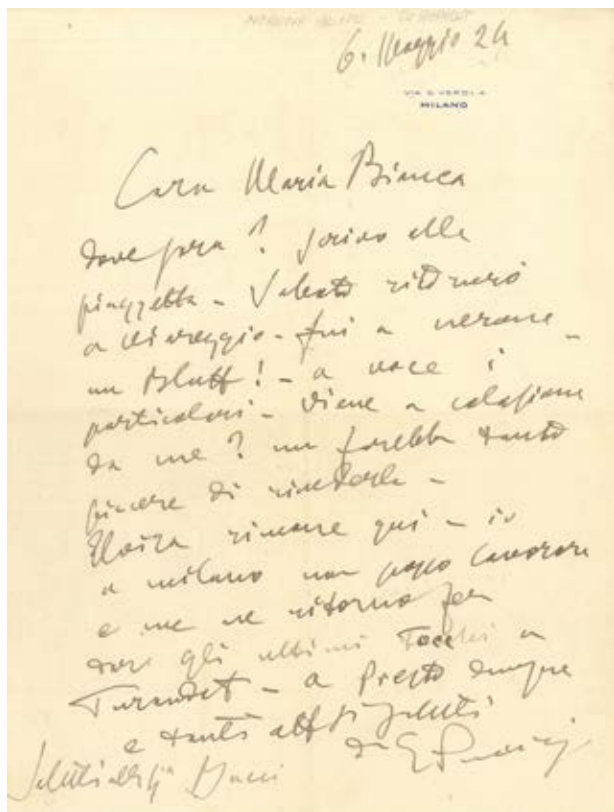 6. Maggio 24
VIA G. VERDI 4
MILANO
Cara Maria Bianca
dove sarà? scrivo alla
piazzetta - Sabato ritornerò
a Viareggio - fui a nerone -
un bluff! - a voce i
particolari - viene a colazione
da me? mi farebbe tanto
piacere di rivederla -
Elvira rimane qui - io
a milano non posso lavorare
e me ne ritorno per
dare gli ultimi tocchi a
Turandot - a Presto dunque
e tanti aff. saluti
da G Puccini
Saluti alla Sig.